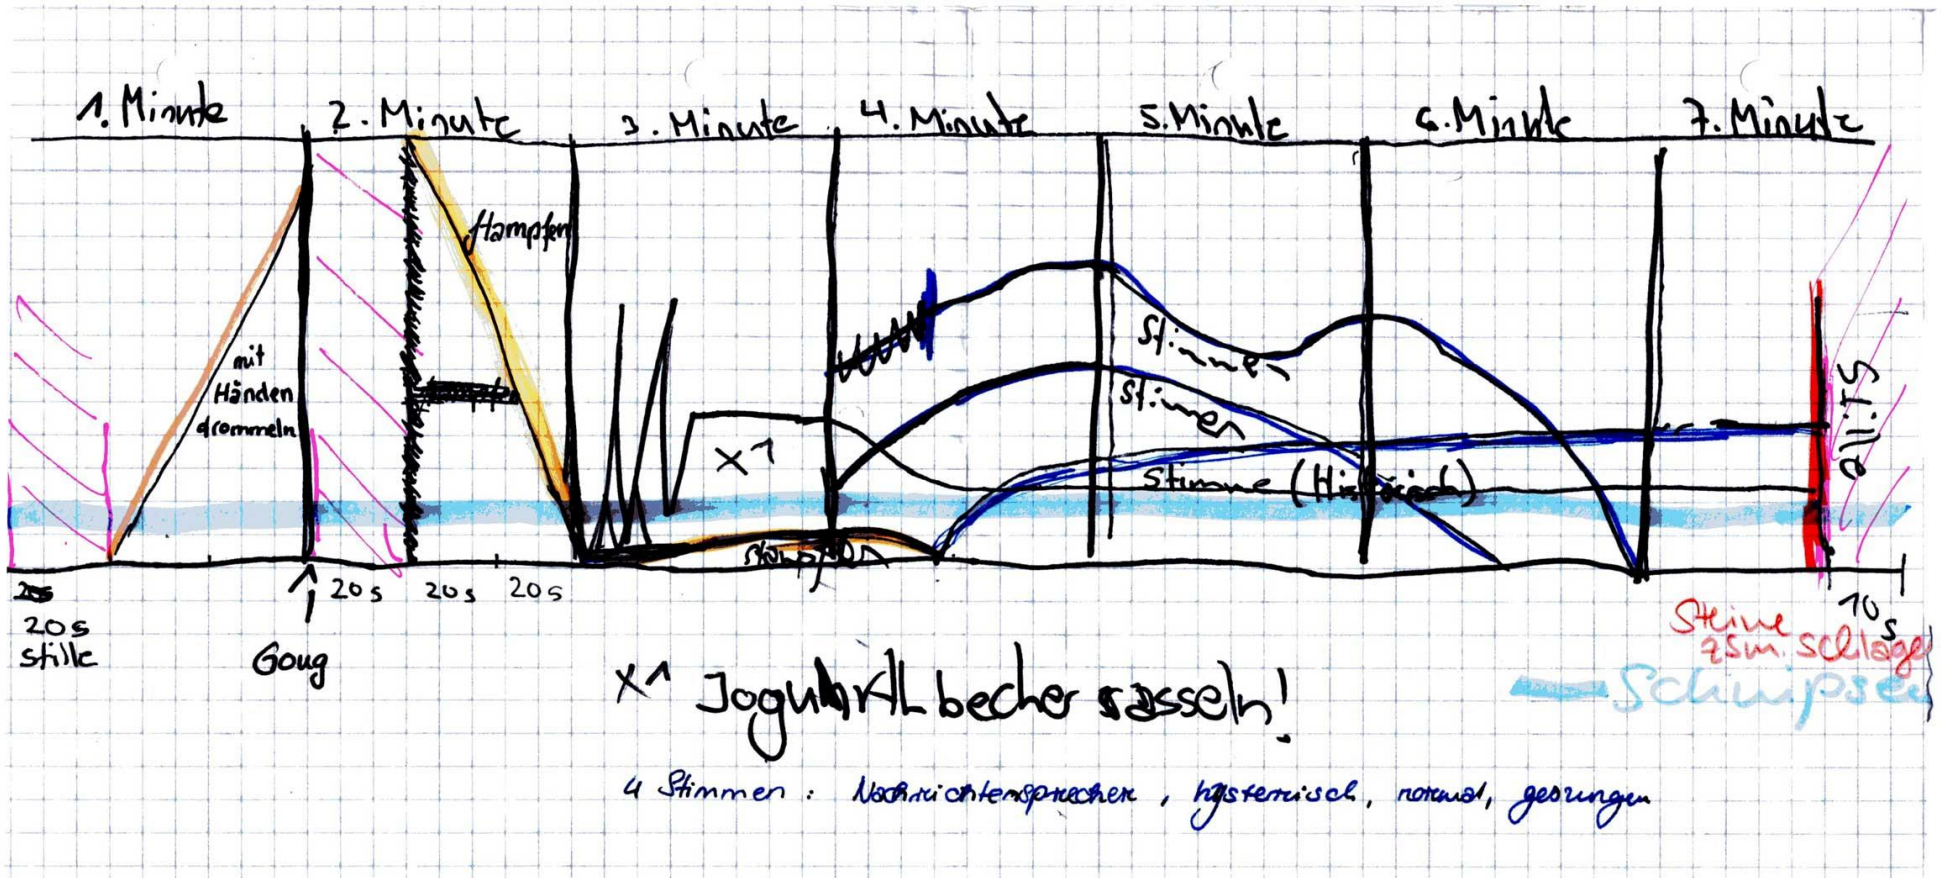 1. Minute
2. Minute
3. Minute
4. Minute
5. Minute
6. Minute
7. Minute
Stampfen
mit
Händen
drommeln
X1
Stimmen
Stimmen
Stimme (Histerisch)
stampfen
Stille
20s
20s
20s
20s
stille
Gong
10s
Steine
zsm. schlagen
Schnipsen
X1 Joguhrtbecher rasseln!
4 Stimmen: Nachrichtensprecher, hysterrisch, normal, gesungen